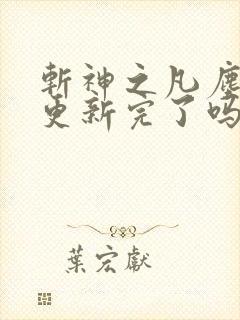 斬神之凡塵
更新完了吗
葉宏獻